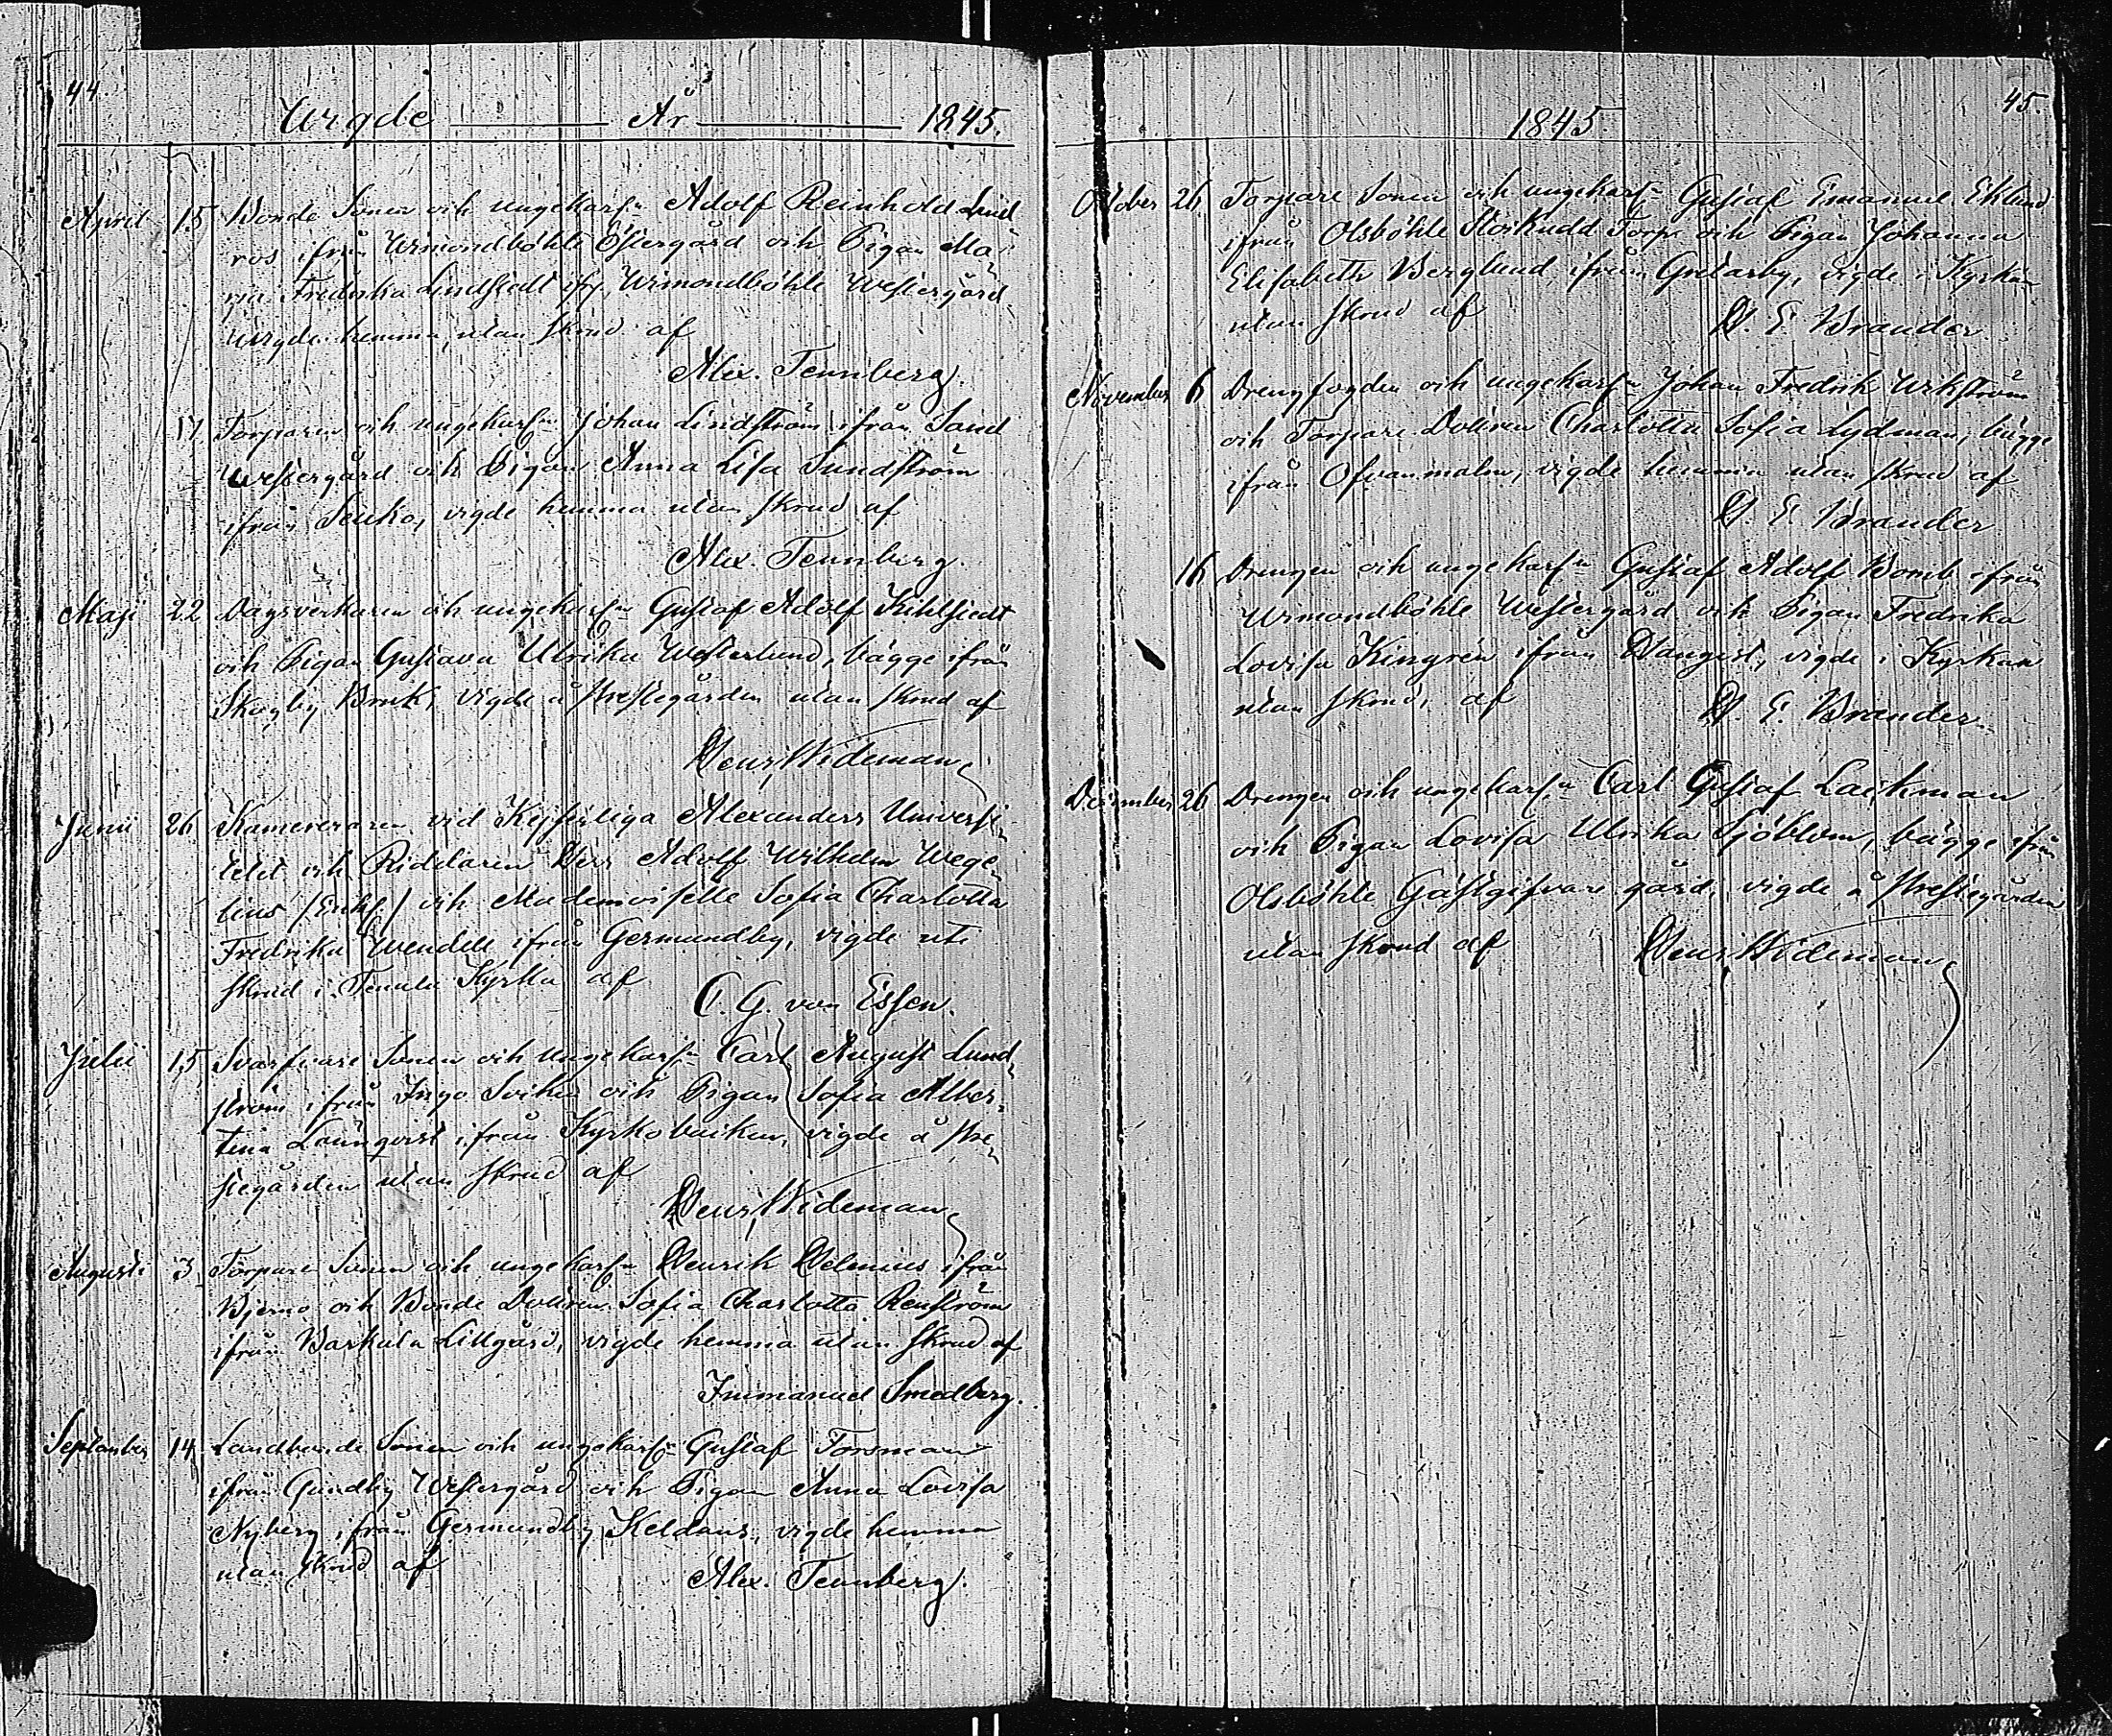 44.
Wigde År 1845.
April 15 Bonde Sonen och ungekarln Adolf Reinhold Lind
ros ifrån Wimondböhle Östergård och Pigan Ma,
ria Fredrika Lindstedt ifr. Wimondböhle Westergård
wigde hemma, utan skrud af
Alex. Tennberg.
17 Torparen och ungekarln Johan Lindström ifrån Sand
Westergård och Pigan Anna Lisa Sundström
ifrån Senko, vigde hemma utan skrud af
Alex. Tennberg.
Maji 22 Dagsverkaren och ungekarln Gustaf Adolf Kihlstedt
och Pigan Gustava Ulrika Westerlund, bägge ifrån
Skogby Bruk, vigde å Prestegården utan skrud af
Henr. Wideman
Junii 26 Kamereraren vid Kejserliga Alexanders Universi,
tetet och Riddaren Herr Adolf Wilhelm Wege,
lius /Enkl/ och Mademoiselle Sofia Charlotta
Fredrika Wendell ifrån Germundby, vigde uti
skrud i Tenala Kyrka af
C. G. von Essen.
Julii 15 Svarfvare Sonen och ungekarln Carl August Lund,
ström ifrån Ingo Svihs och Pigan Sofia Alber,
tina Lönnqvist ifrån Kyrkobacken, vigde å Pre,
stegården utan skrud af
Henr. Wideman
Augusti 3 Torpare Sonen och ungekarln Henrik Helenius ifrån
Bjerno och Bonde Dottren Sofia Charlotta Renström
ifrån Barkala Lillgård, vigde hemma utan skrud af
Immanuel Smedberg.
September 14 Landbonde Sonen och ungekarln Gustaf Forsman
ifrån Gundby Westergård och Pigan Anna Lovisa
Nyberg ifrån Germundby Keldans, vigde hemma
utan skrud af
Alex. Tennberg.
45.
1845
October 26 Torpare Sonen och ungekarln Gustaf Emanuel Eklund
ifrån Olsböhle Storkudd Torp och Pigan Johanna
Elisabeth Berglund ifrån Gretarby, vigde i Kyrkan
utan skrud af
H. E. Brander.
November 6 Drengfogden och ungekarln Johan Fredrik Wikström
och Torpare Dottren Charlotta Sofia Lydman, bägge
ifrån Ofvanmalm, vigde hemma utan skrud af
H. E. Brander
16 Drengen och ungekarln Gustaf Adolf Bomb ifrån
Wimondböhle Westergård och Pigan Fredrika
Lovisa Kingrén ifrån Hangist, vigde i Kyrkan
utan skrud, af
H. E. Brander.
December 26 Drengen och ungekarln Carl Gustaf Lackman
och Pigan Lovisa Ulrika Sjöblom, bägge ifrån
Olsböhle Gästgifvare gård, vigde å Prestegården
utan skrud af
Henr. Wideman